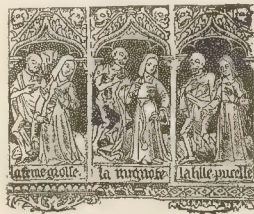 la feme grosse. la mignote la fille pucelle